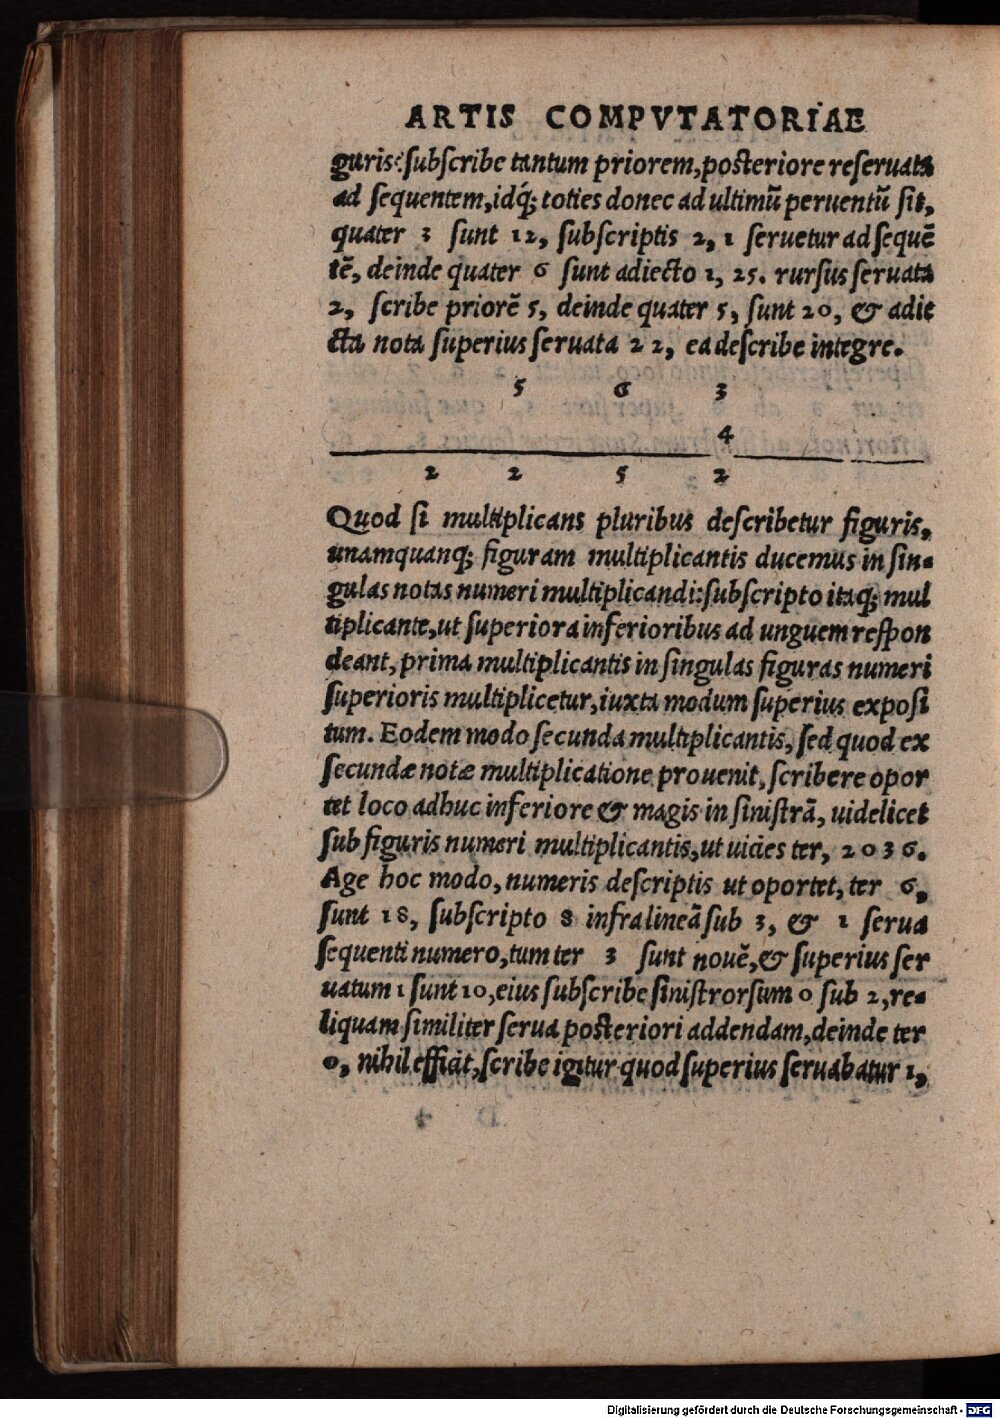 ARTIS COMPVTATORIAE
guris: ſubſcribe tantum priorem, poſteriore reſeruata
ad ſequentem, idq́; toties donec ad ultimũ peruentũ ſit,
quater 3 ſunt 12, ſubſcriptis 2, 1 ſeruetur ad ſequē
tē, deinde quater 6 ſunt adiecto 1, 25. rurſus ſeruata
2, ſcribe priorē 5, deinde quater 5, ſunt 20, & adie
cta nota ſuperius ſeruata 22, ea deſcribe integre.
5 6 3
4
2 2 5 2
Quod ſi multiplicans pluribus deſcribetur figuris,
unamquanq; figuram multiplicantis ducemus in ſin-
gulas notas numeri multiplicandi: ſubſcripto itaq; mul
tiplicante, ut ſuperiora inferioribus ad unguem reſpon
deant, prima multiplicantis in ſingulas figuras numeri
ſuperioris multiplicetur, iuxta modum ſuperius expoſi
tum. Eodem modo ſecunda multiplicantis, ſed quod ex
ſecundæ notæ multiplicatione prouenit, ſcribere opor
tet loco adhuc inferiore & magis in ſiniſtrā, uidelicet
ſub figuris numeri multiplicantis, ut uicies ter, 2036.
Age hoc modo, numeris deſcriptis ut oportet, ter 6,
ſunt 18, ſubſcripto 8 infra lineā ſub 3, & 1 ſerua
ſequenti numero, tum ter 3 ſunt nouē, & ſuperius ſer
uatum 1 ſunt 10, eius ſubſcribe ſiniſtrorſum 0 ſub 2, re-
liquam ſimiliter ſerua poſteriori addendam, deinde ter
0, nihil efficit, ſcribe igitur quod ſuperius ſeruabatur 1,
Digitalisierung gefördert durch die Deutsche Forschungsgemeinschaft - DFG